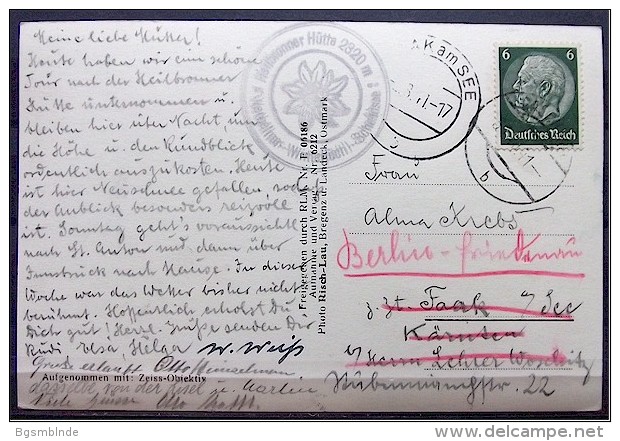 Meine liebe Mutter!
Heute haben wir eine schöne
Tour nach der Heilbronner
Hütte unternommen u.
bleiben hier über Nacht um
die Höhe u. den Rundblick
ordentlich auszukosten. Heute
ist hier Neuschnee gefallen, so daß
der Anblick besonders reizvoll
ist. Sonntag geht's voraussichtl.
nach St. Anton und dann über
Innsbruck nach Hause. In dieser
Woche war das Wetter bisher nicht
berühmt. Hoffentlich erholst Du
Dich gut! Herzl. Grüße senden Dir
Rudi, Elsa, Helga W. Weiß
Gruß erlaubt Otto
Aufgenommen mit: Zeiss-Objektiv
von der Insel u. Martin
Viele Grüsse Otto
Heilbronner Hütte 2320 m
Freigegeben durch RLM. Nr. F. 06186
Aufnahme und Verlag Nr. 6212
Photo Risch-Lau, Bregenz u. Landeck, Ostmark
AK am SEE
-17
b
6 6
Deutsches Reich
Frau
Alma Krebs
Berlin-Friedenau
z. Zt. Faak a/See
Kärnten
b/ Herrn Lehrer
22
Bgsmblnde
delcampe.net